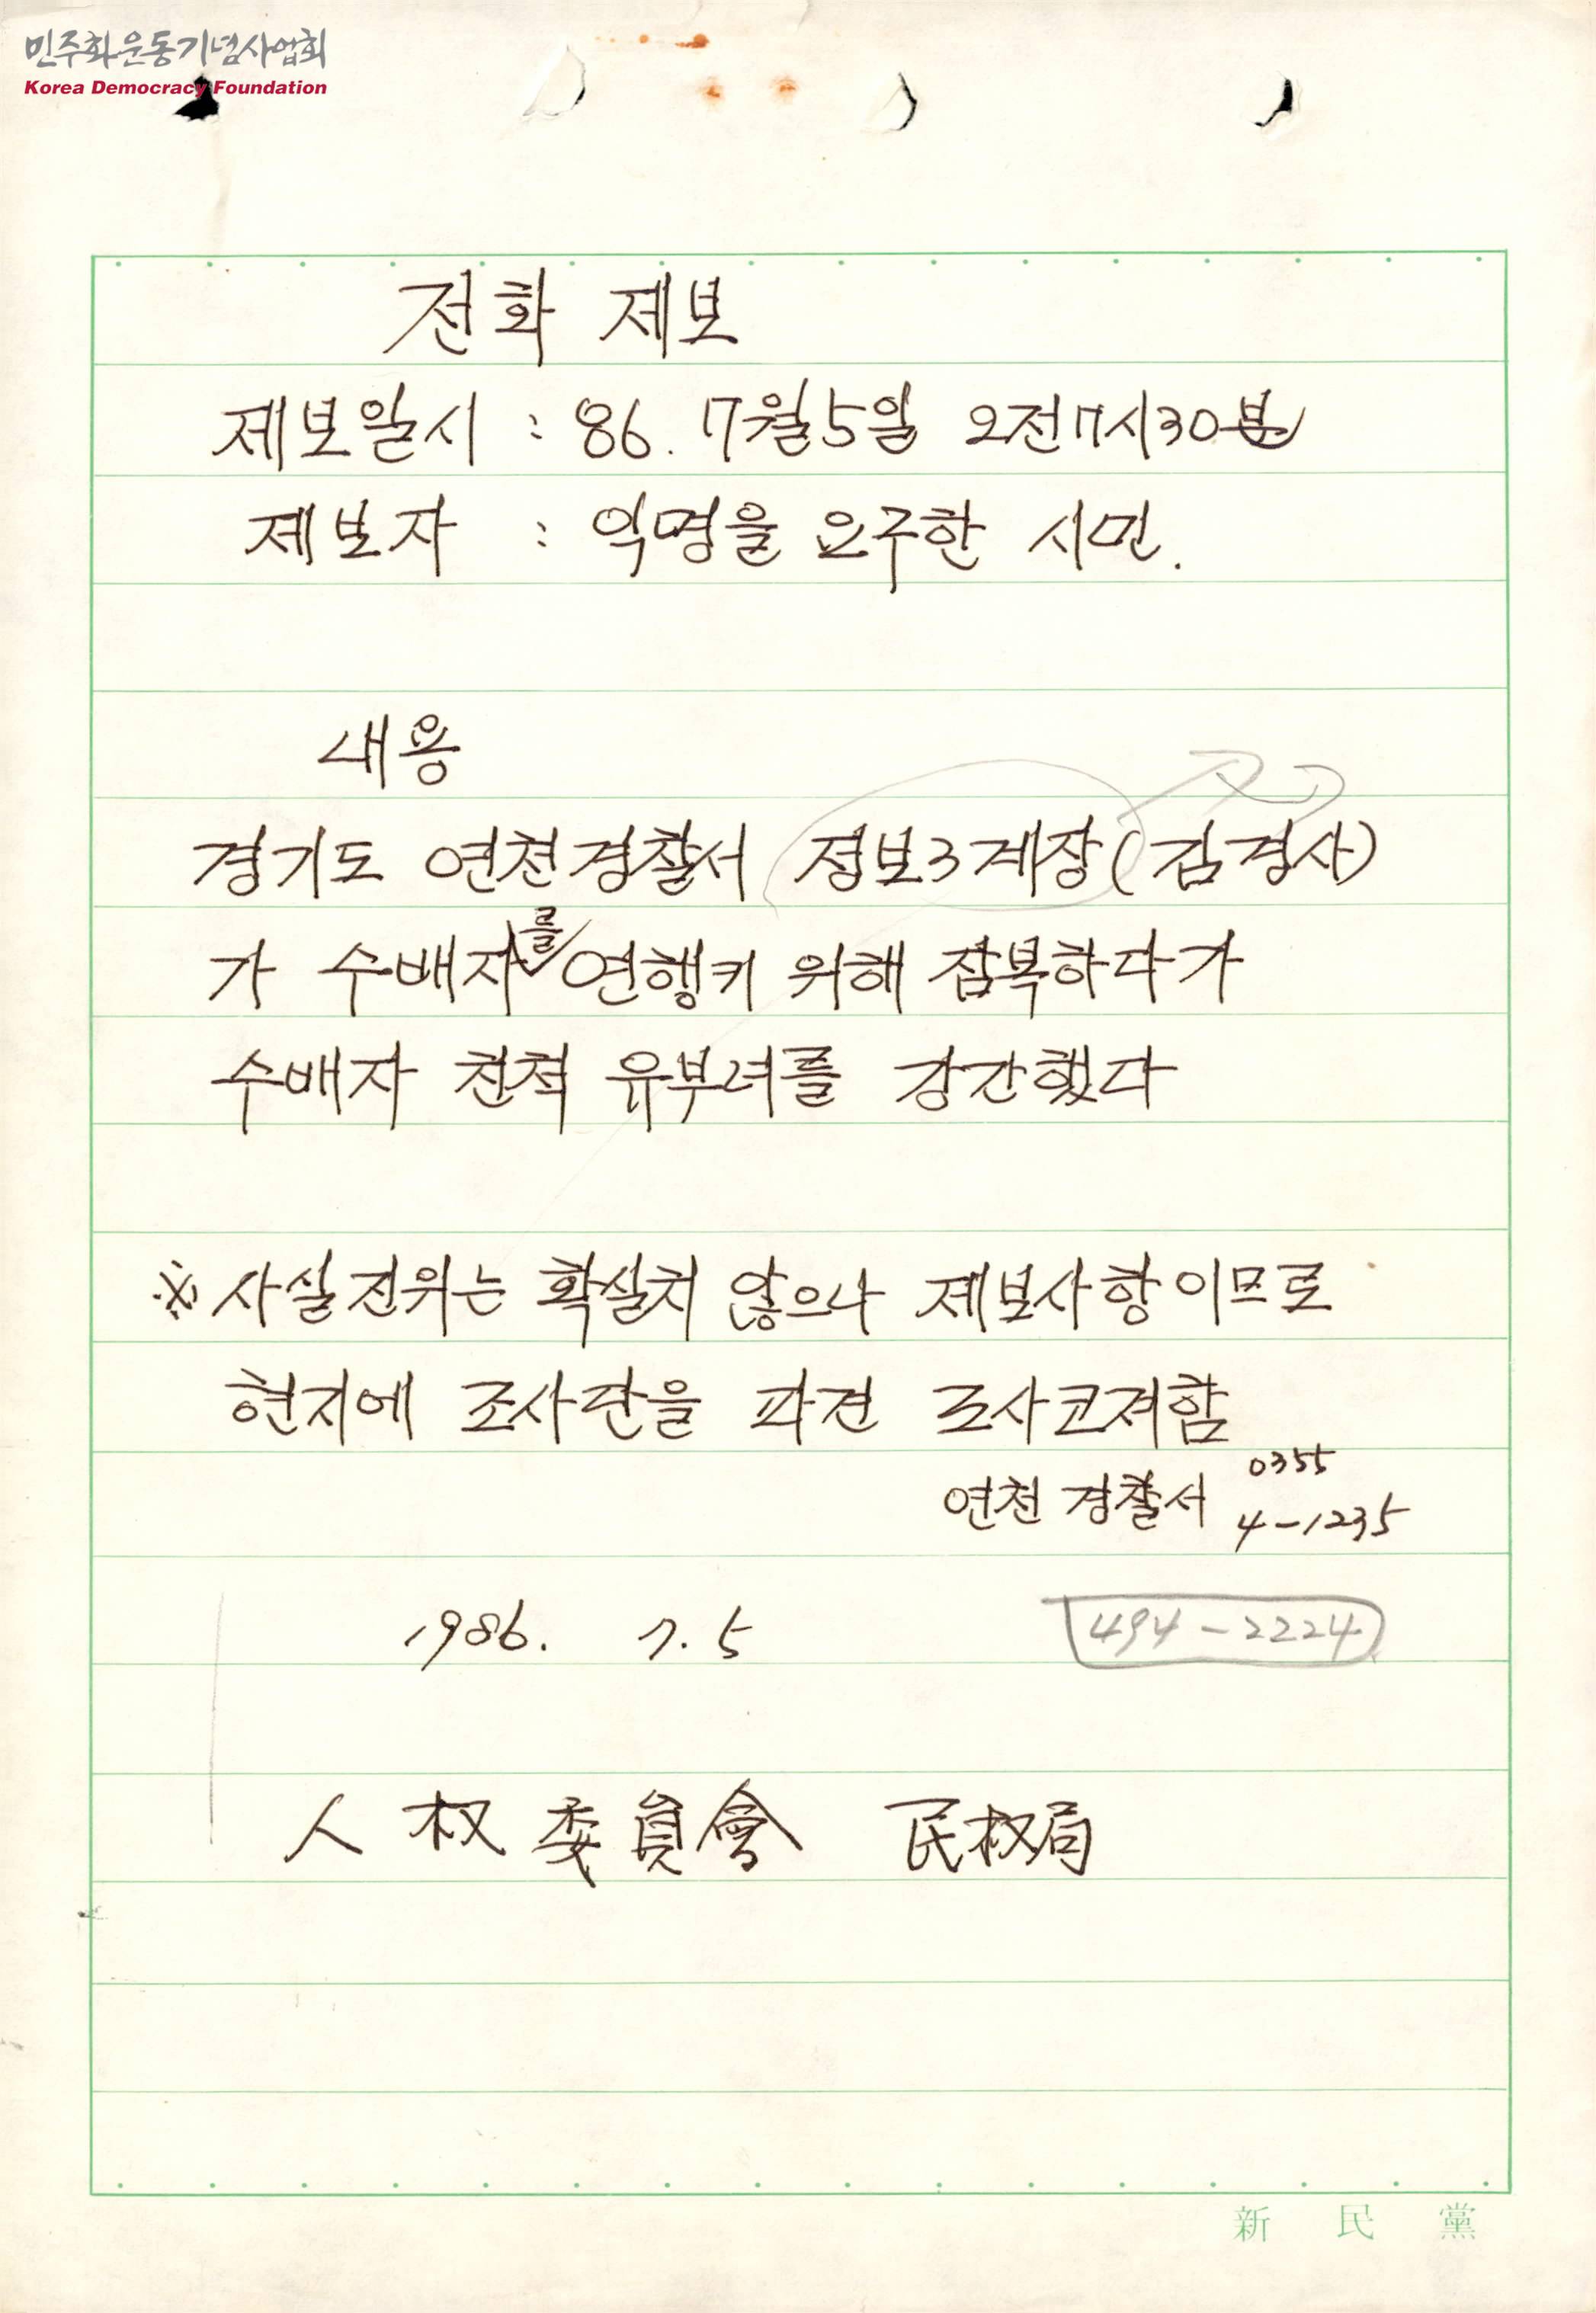 민주화운동기념사업회
Korea Democracy Foundation
전화 제보
제보일시 : 86. 7월5일 오전7시30분
제보자 : 익명을 요구한 시민.
내용
경기도 연천경찰서 정보3계장(김경사)
가 수배자를 연행키 위해 잠복하다가
수배자 친척 유부녀를 강간했다
※ 사실 진위는 확실치 않으나 제보사항이므로
현지에 조사단을 파견 조사코저함
연천 경찰서 0355
4-1235
1986. 7. 5
494-2224
人权委員會 民权局
新民黨